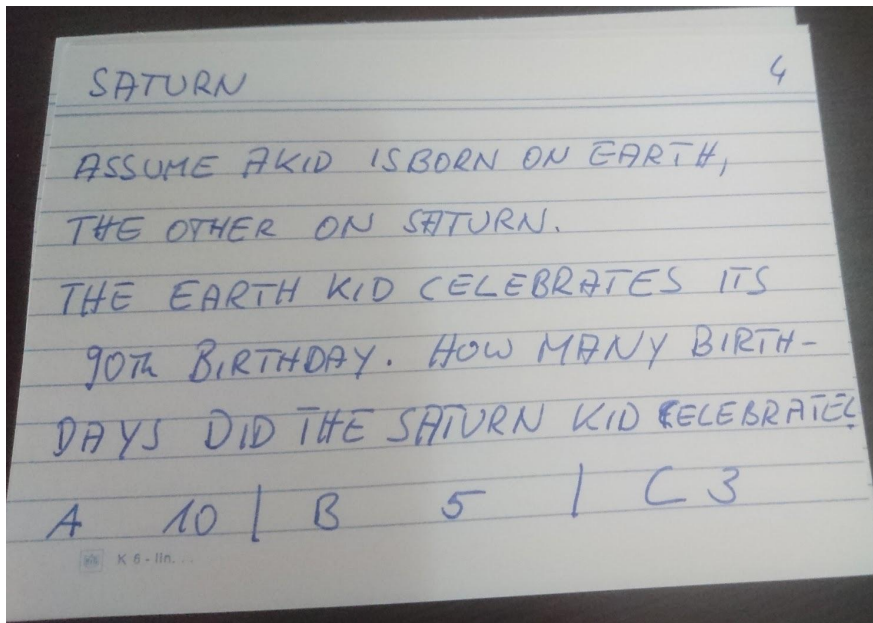 SATURN 4
ASSUME A KID IS BORN ON EARTH,
THE OTHER ON SATURN.
THE EARTH KID CELEBRATES ITS
90th BIRTHDAY. HOW MANY BIRTH-
DAYS DID THE SATURN KID CELEBRATE?
A 10 | B 5 | C 3
K 6 - lin.